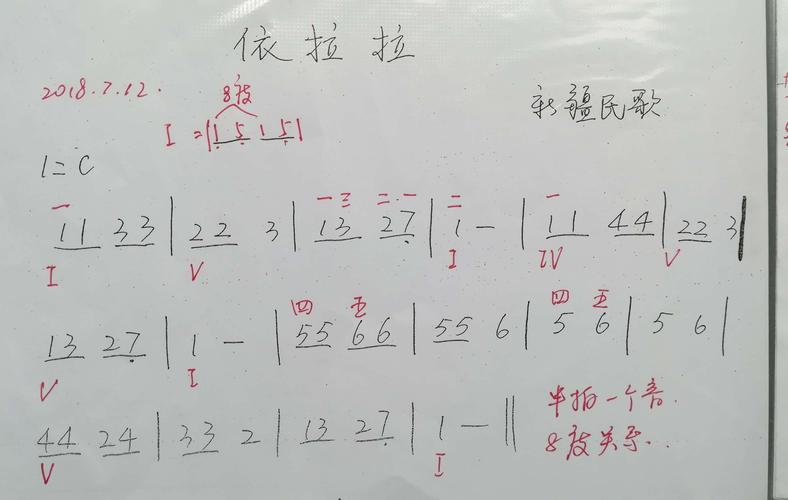 依拉拉
2018.7.12.
8度
新疆民歌
I = | 1 5 1 5 |
1 = C
一 一 三 二 一 二 一
11 33 | 22 3 | 13 27 | 1 - | 11 44 | 22 3 |
I V I IV V
四 五 四 五
13 27 | 1 - | 55 66 | 55 6 | 5 6 | 5 6 |
V I
44 24 | 33 2 | 13 27 | 1 - ||
V I
半拍一个音.
8度关系.